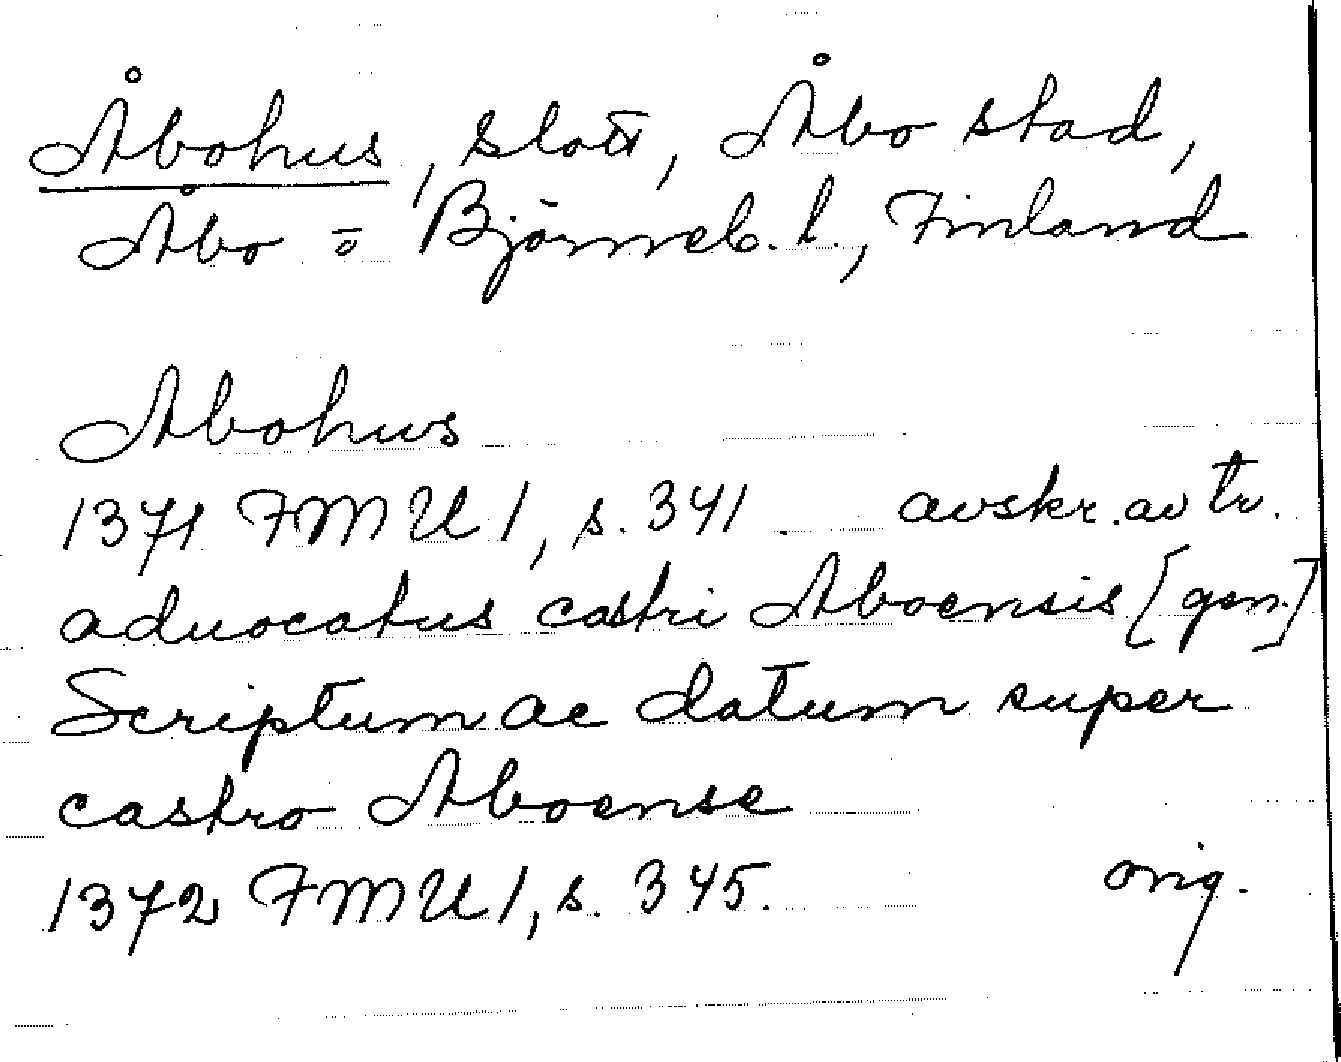 Åbohus, slott, Åbo stad,
Åbo = Björneb. l., Finland
Abohus
1371 FMU 1, s. 341. avskr. av tr.
aduocatus castri Aboensis [gen.]
Scriptum ac datum super
castro Aboense
1372 FMU 1, s. 345. orig.